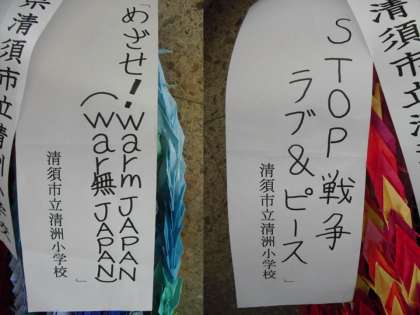 県清須市立清洲小学校
「めざせ！warm JAPAN
(war無JAPAN)」
清須市立清洲小学校
STOP戦争
ラブ&ピース」
清須市立清洲小学校
清須市